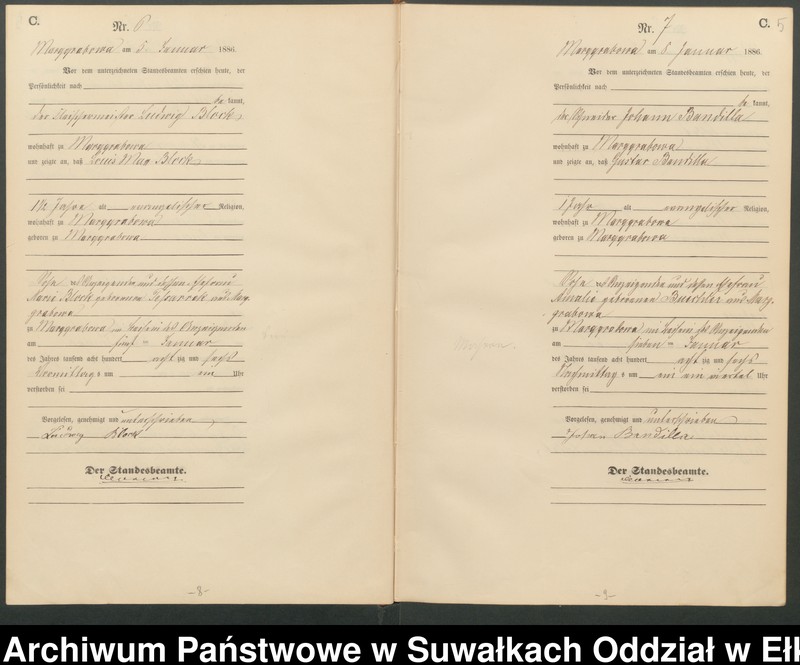 C.
Nr. 6
Marggrabowa am 5 Januar 1886.
Vor dem unterzeichneten Standesbeamten erschien heute, der
Persönlichkeit nach
be kannt,
der Fleischermeister Ludwig Block
wohnhaft zu Marggrabowa
und zeigte an, daß Louis Max Block
1½ Jahre alt evangelischer Religion,
wohnhaft zu Marggrabowa
geboren zu Marggrabowa
Sohn des Anzeigenden und dessen Ehefrau
Maria Block geborenen
grabowa
zu Marggrabowa im Hause des Anzeigenden
am fünf ten Januar
des Jahres tausend acht hundert acht zig und sechs
Vormittags um ein Uhr
verstorben sei
Vorgelesen, genehmigt und unterschrieben
Ludwig Block
Der Standesbeamte.
-8-
C. 5
Nr. 7
Marggrabowa am Januar 1886.
Vor dem unterzeichneten Standesbeamten erschien heute, der
Persönlichkeit nach
be kannt,
der Schneider Johann Bandilla
wohnhaft zu Marggrabowa
und zeigte an, daß Gustav Bandilla
1 Jahr alt evangelischer Religion,
wohnhaft zu Marggrabowa
geboren zu Marggrabowa
Sohn des Anzeigenden und dessen Ehefrau
Amalie geborenen Buechler aus Marg-
grabowa
zu Marggrabowa im Hause des Anzeigenden
am sieben ten Januar
des Jahres tausend acht hundert acht zig und sechs
Nachmittag s um ein ein viertel Uhr
verstorben sei
Vorgelesen, genehmigt und unterschrieben
Johann Bandilla
Der Standesbeamte.
-9-
Archiwum Państwowe w Suwałkach Oddział w Eł